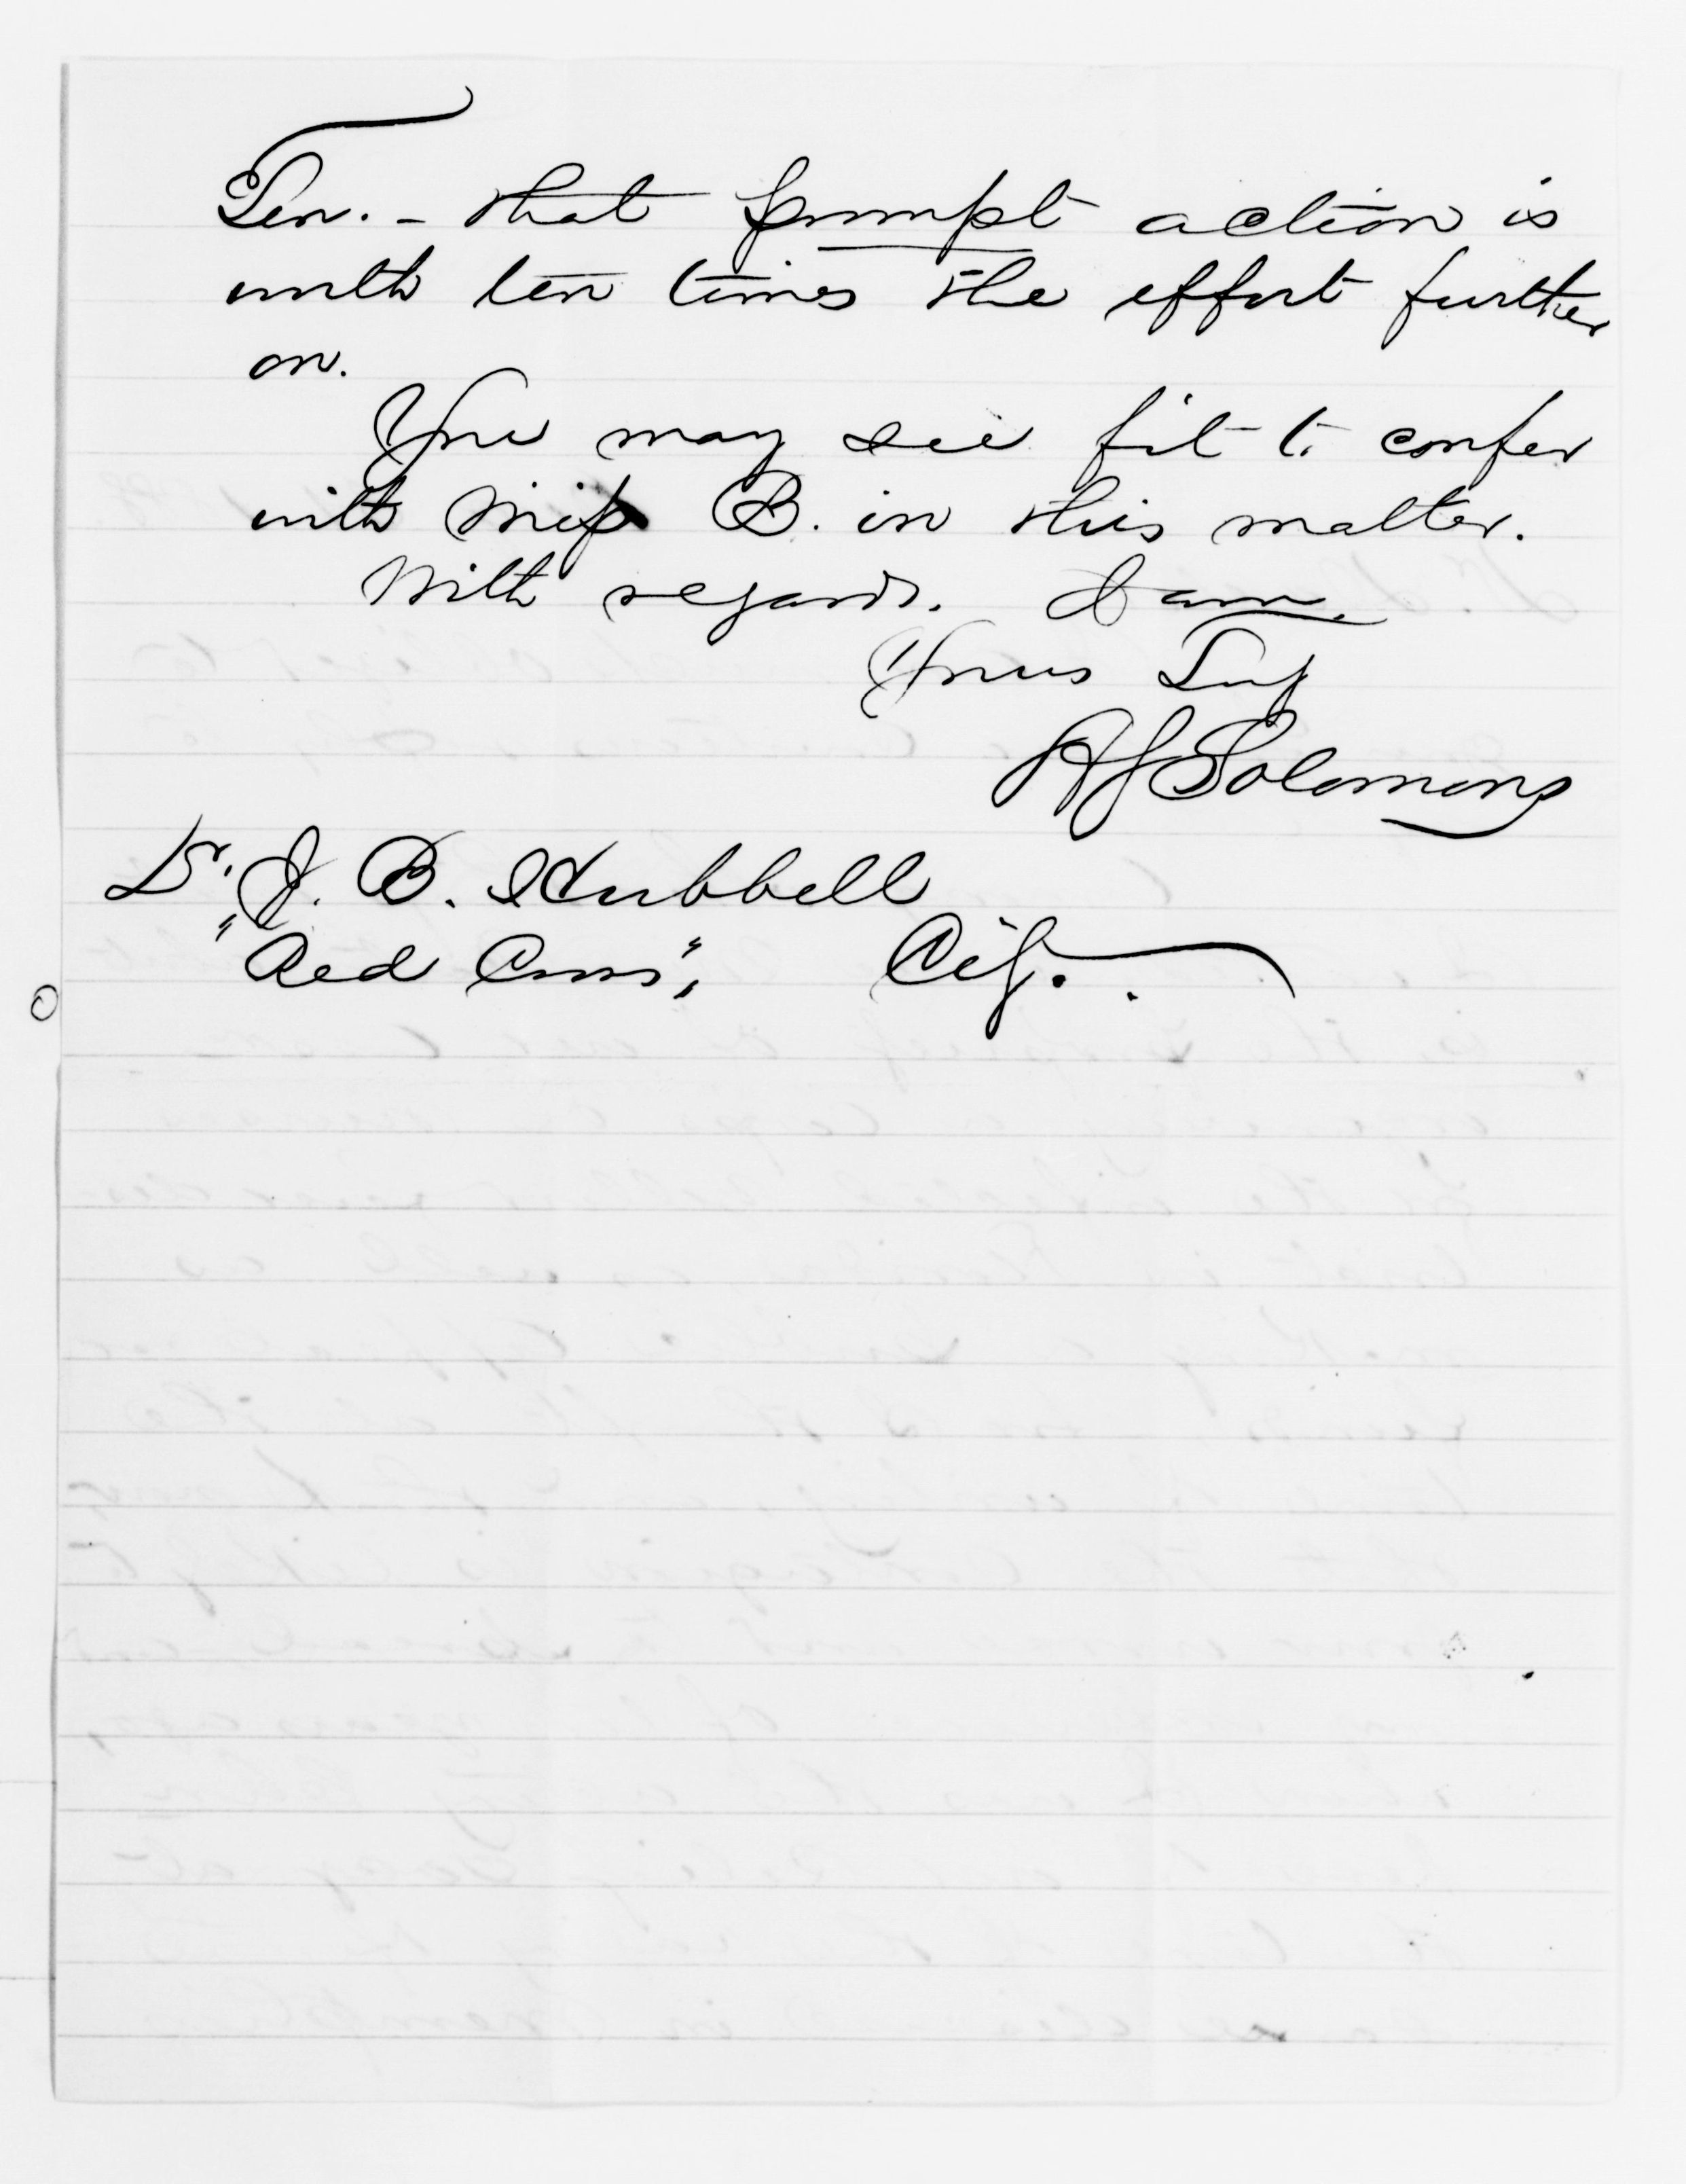 Ten. - that prompt action is
worth ten times the effort further
on.
You may see fit to confer
with Miss B. in this matter.
With regards. I am,
Yours Truly
A S Solomons
Dr. J. B. Hubbell
"Red Cross", City.